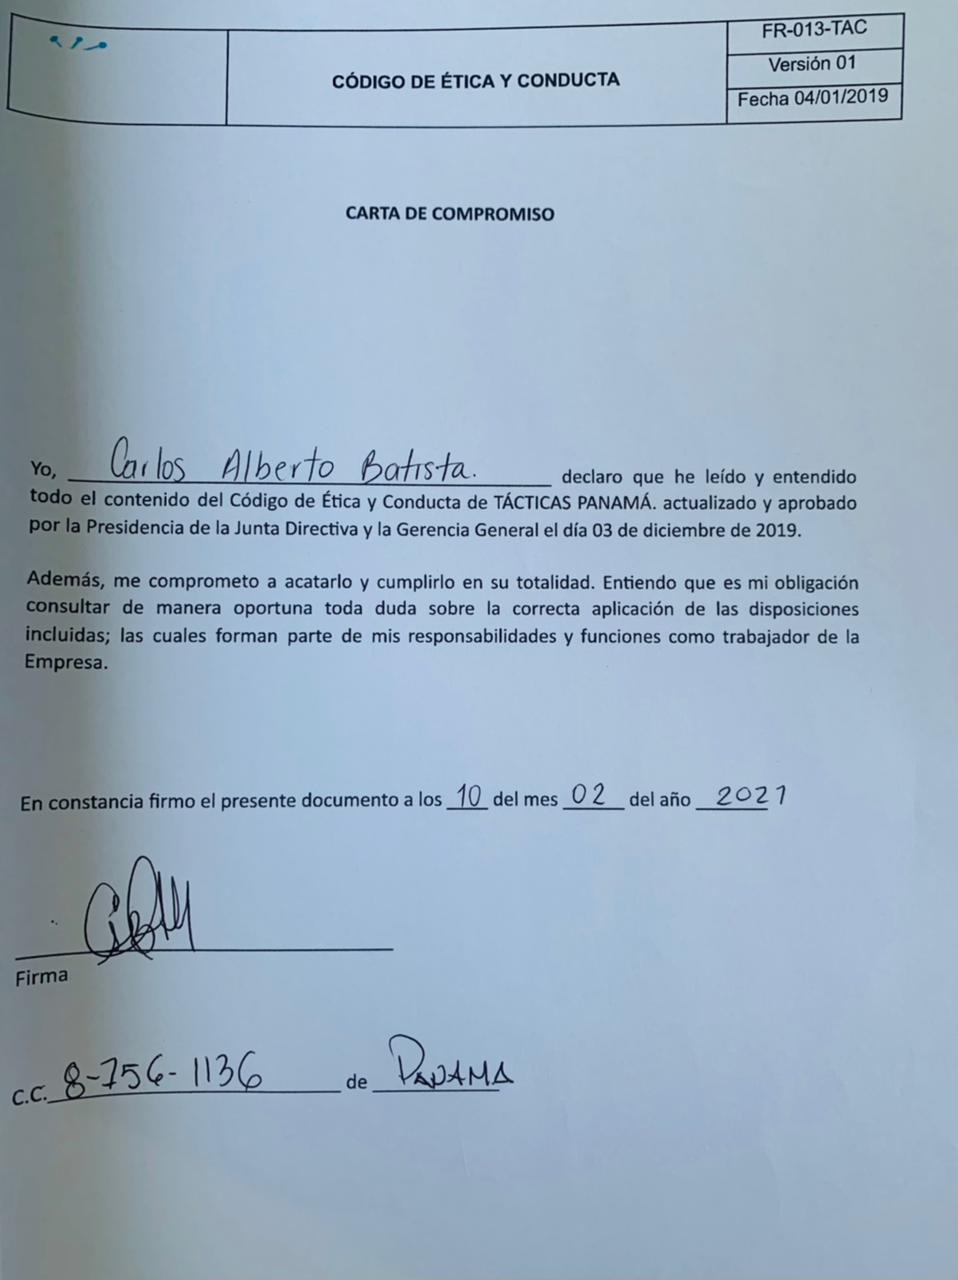 CÓDIGO DE ÉTICA Y CONDUCTA
FR-013-TAC
Versión 01
Fecha 04/01/2019
CARTA DE COMPROMISO
Yo, Carlos Alberto Batista. declaro que he leído y entendido
todo el contenido del Código de Ética y Conducta de TÁCTICAS PANAMÁ. actualizado y aprobado
por la Presidencia de la Junta Directiva y la Gerencia General el día 03 de diciembre de 2019.
Además, me comprometo a acatarlo y cumplirlo en su totalidad. Entiendo que es mi obligación
consultar de manera oportuna toda duda sobre la correcta aplicación de las disposiciones
incluidas; las cuales forman parte de mis responsabilidades y funciones como trabajador de la
Empresa.
En constancia firmo el presente documento a los 10 del mes 02 del año 2021
Firma
C.C. 8-756-1136 de PANAMA